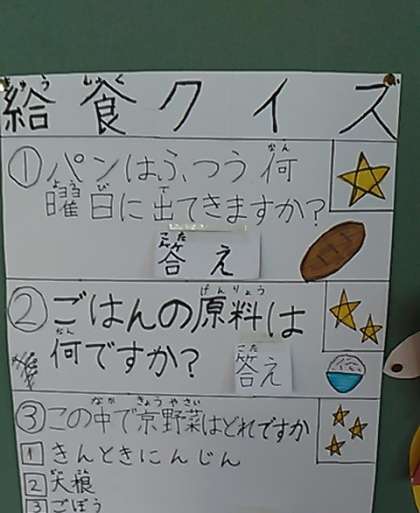 給食クイズ
①パンはふつう何
曜日に出てきますか?
答え
②ごはんの原料は
何ですか?
答え
③この中で京野菜はどれですか
1 きんときにんじん
2 大根
3 ごぼう